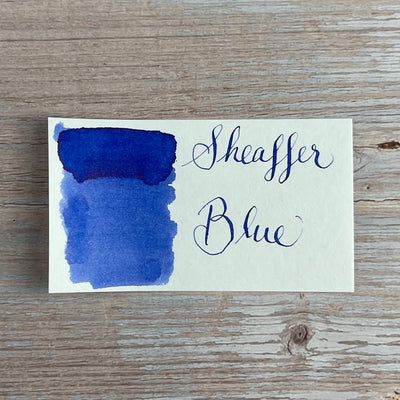 Sheaffer
Blue